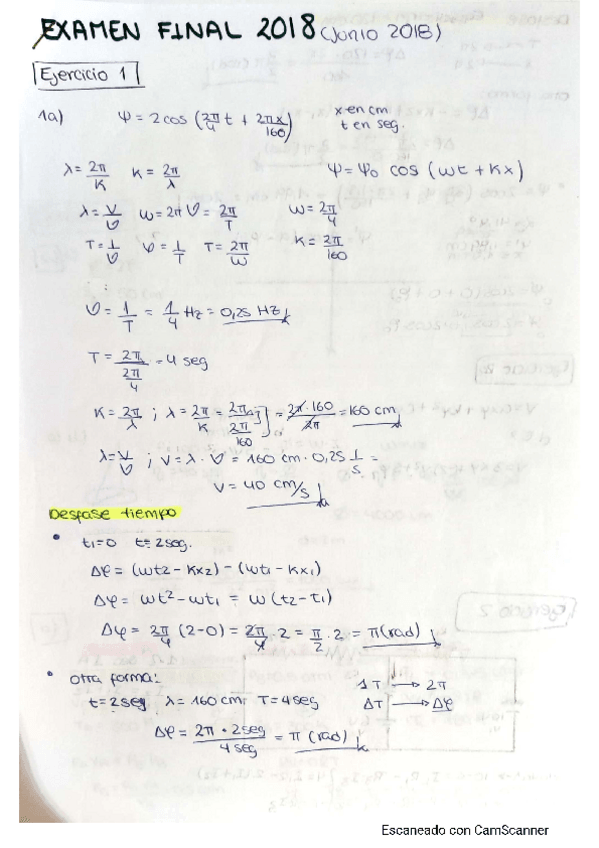 EXAMEN FINAL 2018 (Junio 2018)
Ejercicio 1
1a) Ψ = 2 cos (2π/4 t + 2πx/160) x en cm.
t en seg.
λ = 2π/K K = 2π/λ Ψ = Ψ₀ cos (ωt + Kx)
λ = V/υ ω = 2π υ = 2π/T ω = 2π/4
T = 1/υ υ = 1/T T = 2π/ω K = 2π/160
υ = 1/T = 1/4 Hz = 0,25 Hz
T = 2π/(2π/4) = 4 seg
K = 2π/λ ; λ = 2π/K = 2π/(2π/160) = 2π·160/2π = 160 cm
λ = V/υ ; V = λ · υ = 160 cm · 0,25 1/s =
V = 40 cm/s
Desfase tiempo
• t₁=0 t=2seg.
Δφ = (ωt₂ - Kx₂) - (ωt₁ - Kx₁)
Δφ = ωt² - ωt₁ = ω (t₂ - t₁)
Δφ = 2π/4 (2-0) = 2π/4 · 2 = π/2 · 2 = π (rad)
• otra forma:
t=2seg λ=160cm T=4seg 1T → 2π
ΔT → Δφ
Δφ = 2π · 2seg / 4seg = π (rad)
Escaneado con CamScanner